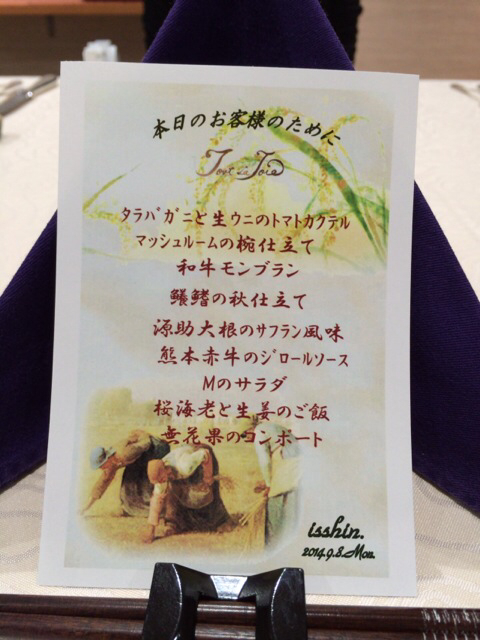 本日のお客様のために
タラバガニと生ウニのトマトカクテル
マッシュルームの椀仕立て
和牛モンブラン
鱶鰭の秋仕立て
源助大根のサフラン風味
熊本赤牛のジロールソース
Mのサラダ
桜海老と生姜のご飯
無花果のコンポート
isshin.
2014.9.8.Mon.